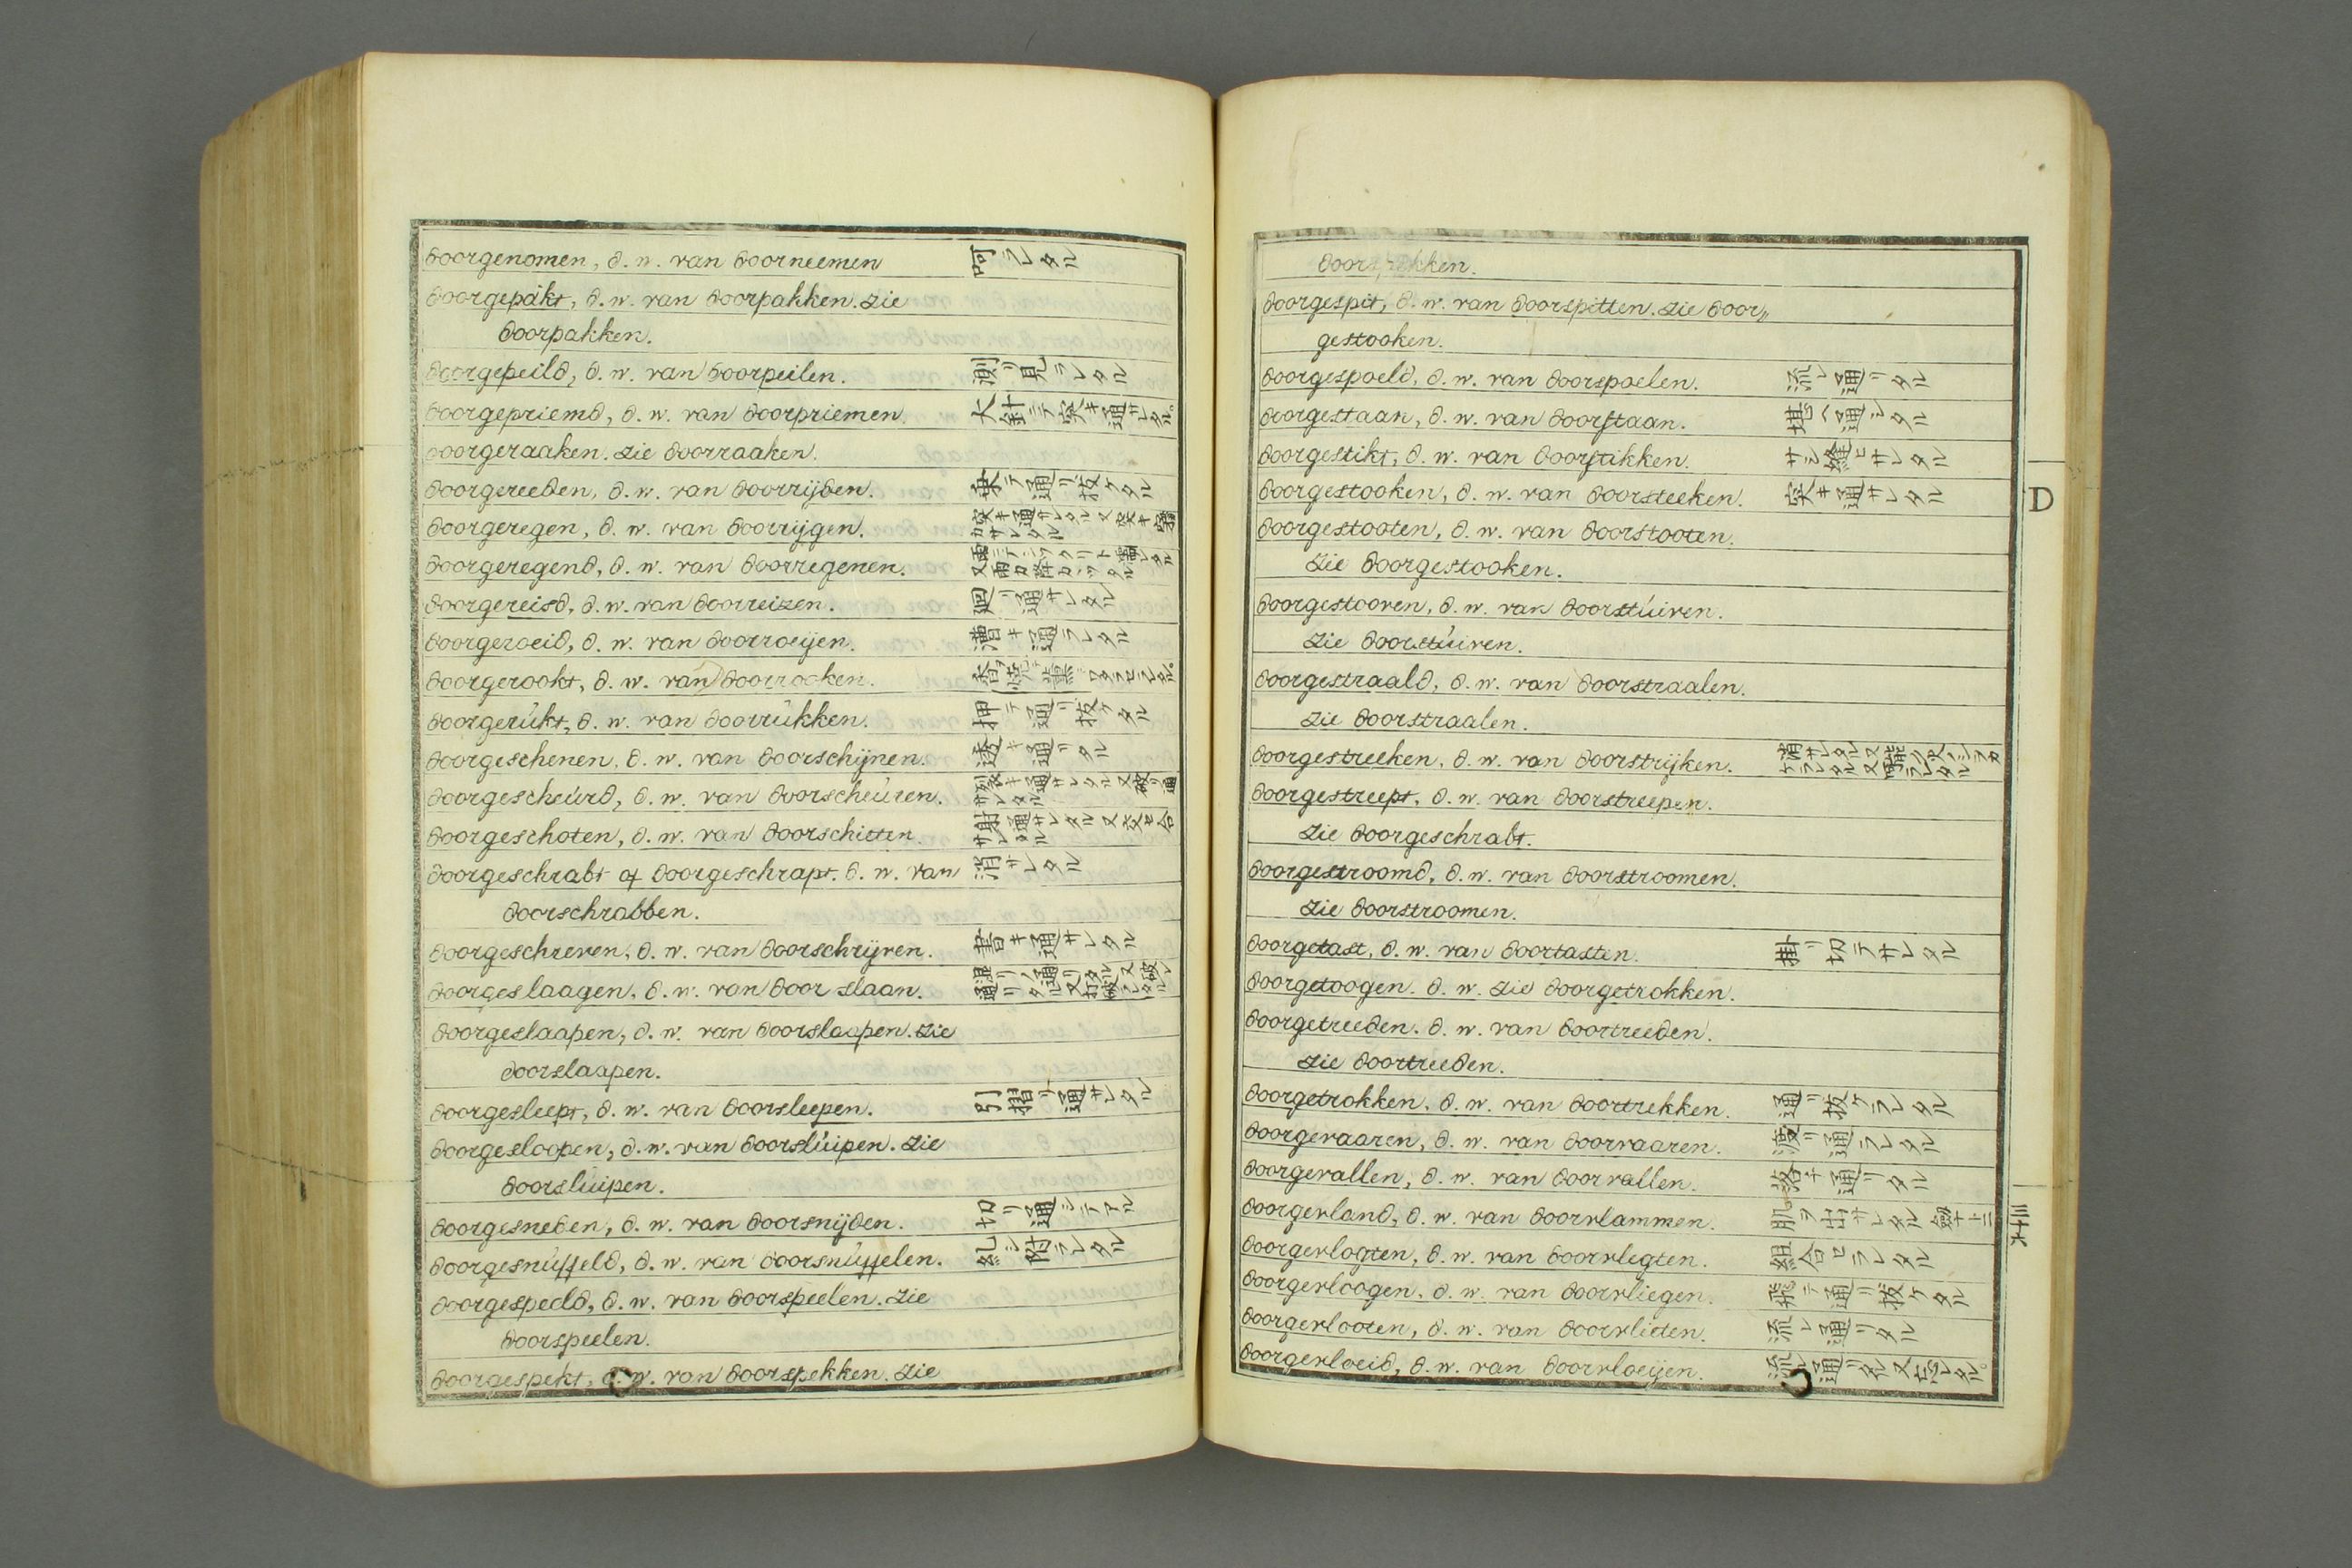 doorgenomen, d. w. van doorneemen 呵ラレタル
doorgepakt, d. w. van doorpakken. zie
doorpakken.
doorgepeild, d. w. van doorpeilen. 測リ見ラレタル
doorgepriemd, d. w. van doorpriemen. 大針ニテ突キ通サレタル。
doorgeraaken. zie doorraaken.
doorgereeden, d. w. van doorrijden. 乗テ通リ抜ケタル
doorgeregen, d. w. van doorrijgen. 突キ通サレタル又突キ
doorgeregend, d. w. van doorregenen.
doorgereisd, d. w. van doorreizen. 廻リ通サレタル
doorgeroeid, d. w. van doorroeijen. 漕キ通ラレタル
doorgerookt, d. w. van doorrooken.
doorgerúkt, d. w. van doorrúkken. 押テ通リ抜ケタル
doorgeschenen, d. w. van doorschijnen. 透キ通リタル
doorgescheúrd, d. w. van doorscheúren. 裂キ通サレタル又破リ通サレタル
doorgeschoten, d. w. van doorschieten. 射通サレタル又交セ合サレタル
doorgeschrabt of doorgeschrapt. d. w. van 消サレタル
doorschrabben.
doorgeschreven, d. w. van doorschrijven. 書キ通サレタル
doorgeslaagen, d. w. van door slaan.
doorgeslaapen, d. w. van doorslaapen. zie
doorslaapen.
doorgesleept, d. w. van doorsleepen. 引摺リ通サレタル
doorgesloopen, d. w. van doorslúipen. zie
doorslúipen.
doorgesneden, d. w. van doorsnijden. 切リ通シテアル
doorgesnúffeld, d. w. van doorsnúffelen.
doorgespeeld, d. w. van doorspeelen. zie
doorspeelen.
doorgespekt, d. w. van doorspekken. zie
doorspekken.
doorgespit, d. w. van doorspitten. zie door〃
gestooken.
doorgespoeld, d. w. van doorspoelen. 流レ通リタル
doorgestaan, d. w. van doorstaan. 堪ヘ通シタル
doorgestikt, d. w. van doorstikken. サシ縫ヒサレタル
doorgestooken, d. w. van doorsteeken. 突キ通サレタル
D
doorgestooten, d. w. van doorstooten.
zie doorgestooken.
doorgestooven, d. w. van doorstúiven.
zie doorstúiven.
doorgestraald, d. w. van doorstraalen.
zie doorstraalen.
doorgestreeken, d. w. van doorstrijken.
doorgestreept, d. w. van doorstreepen.
zie doorgeschrabt.
doorgestroomd, d. w. van doorstroomen.
zie doorstroomen.
doorgetast, d. w. van doortasten. 掛リ切ラサレタル
doorgetoogen. d. w. zie doorgetrokken.
doorgetreeden. d. w. van doortreeden.
zie doortreeden.
doorgetrokken, d. w. van doortrekken. 通リ抜ケラレタル
doorgevaaren, d. w. van doorvaaren. 渡リ通ラレタル
doorgevallen, d. w. van doorvallen. 落チ通リタル
doorgevland, d. w. van doorvlammen. 肌ヲ出サレタル
三十六
doorgevlogten, d. w. van doorvlegten. 組合ヒラレタル
doorgevloogen, d. w. van doorvliegen. 飛テ通リ抜ケタル
doorgevlooten, d. w. van doorvlieten. 流レ通リタル
doorgevloeid, d. w. van doorvloeijen. 流レ通リタル又